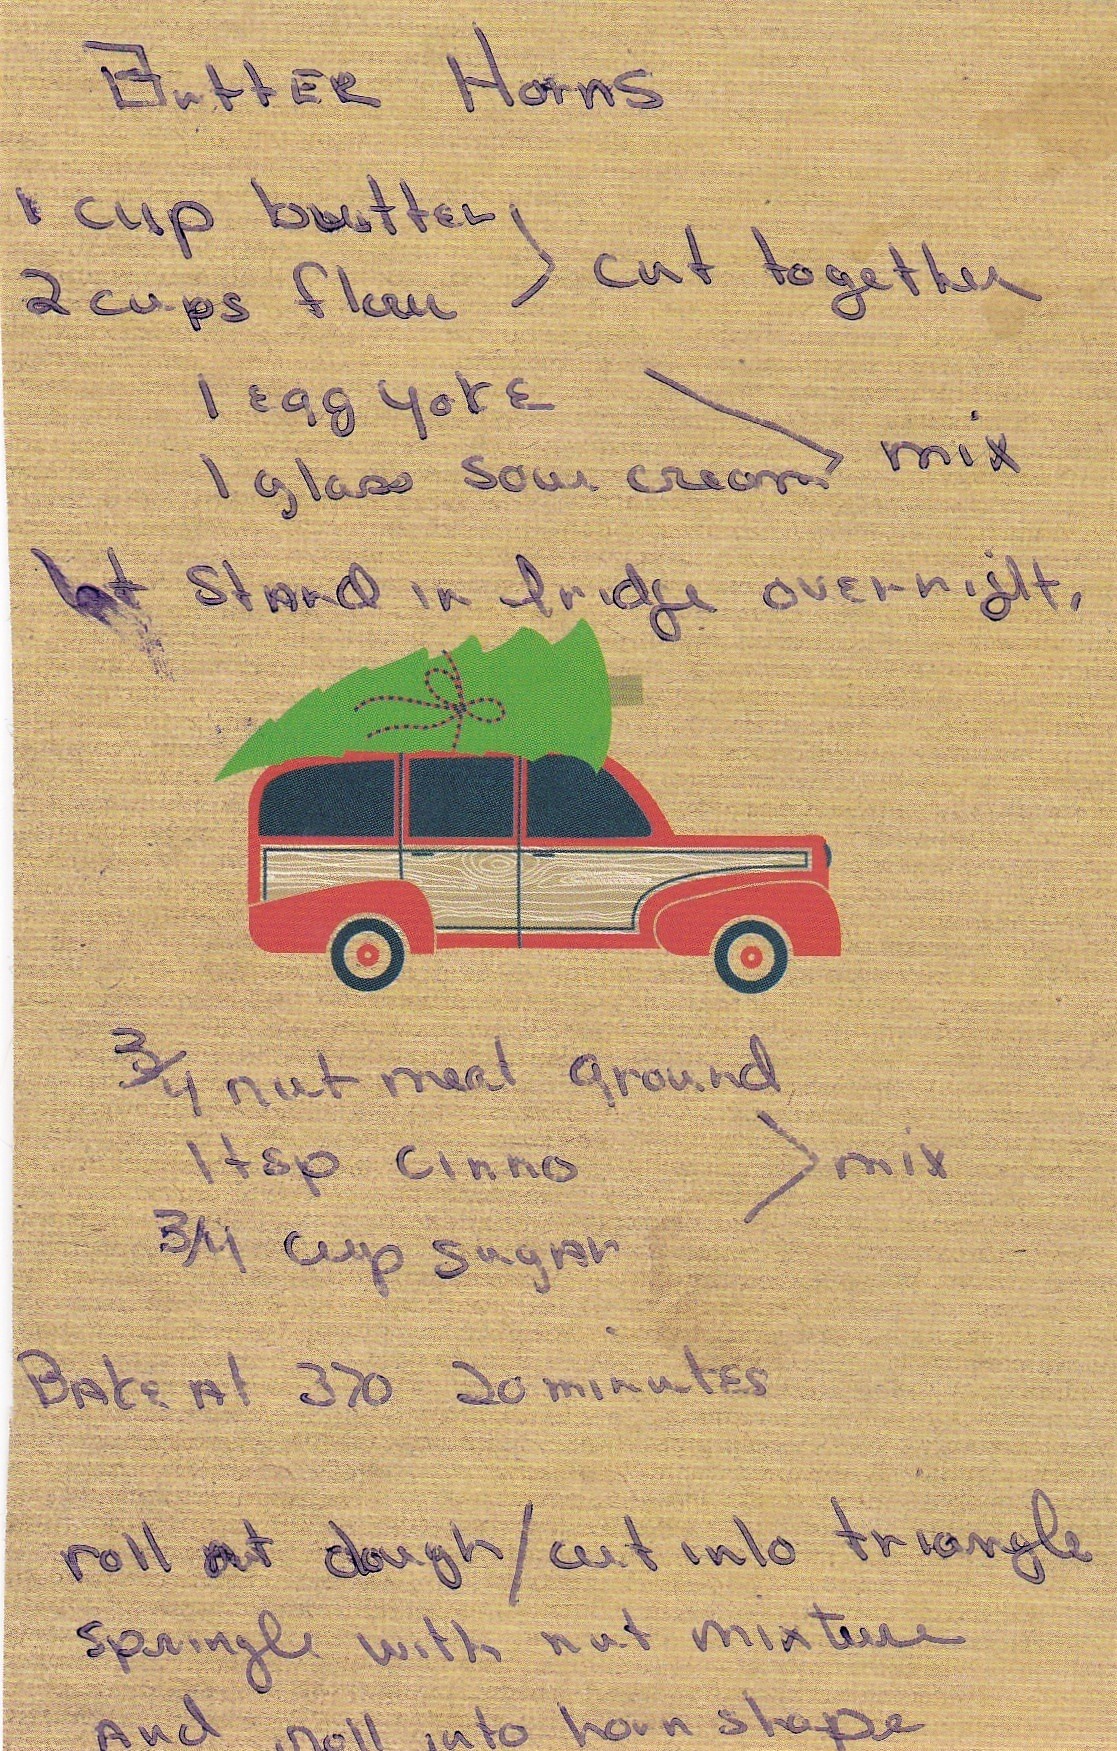 Butter Horns
1 cup butter
2 cups flour
cut together
1 egg yoke
1 glass sour cream
mix
let stand in fridge overnight.
3/4 nut meat ground
1 tsp cinno
mix
3/4 cup sugar
Bake at 370 20 minutes
roll out dough/cut into triangle
springle with nut mixture
and roll into horn shape